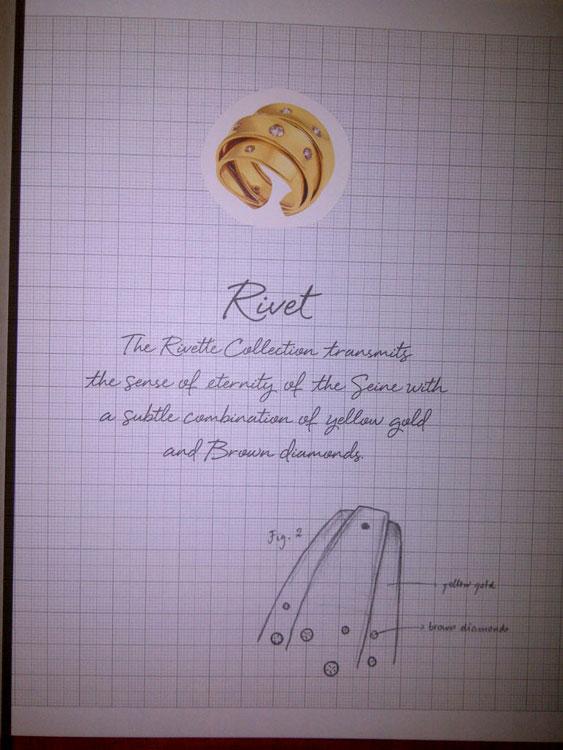 Rivet
The Rivette Collection transmits
the sense of eternity of the Seine with
a subtle combination of yellow gold
and Brown diamonds.
Fig. 2
yellow gold
brown diamonds